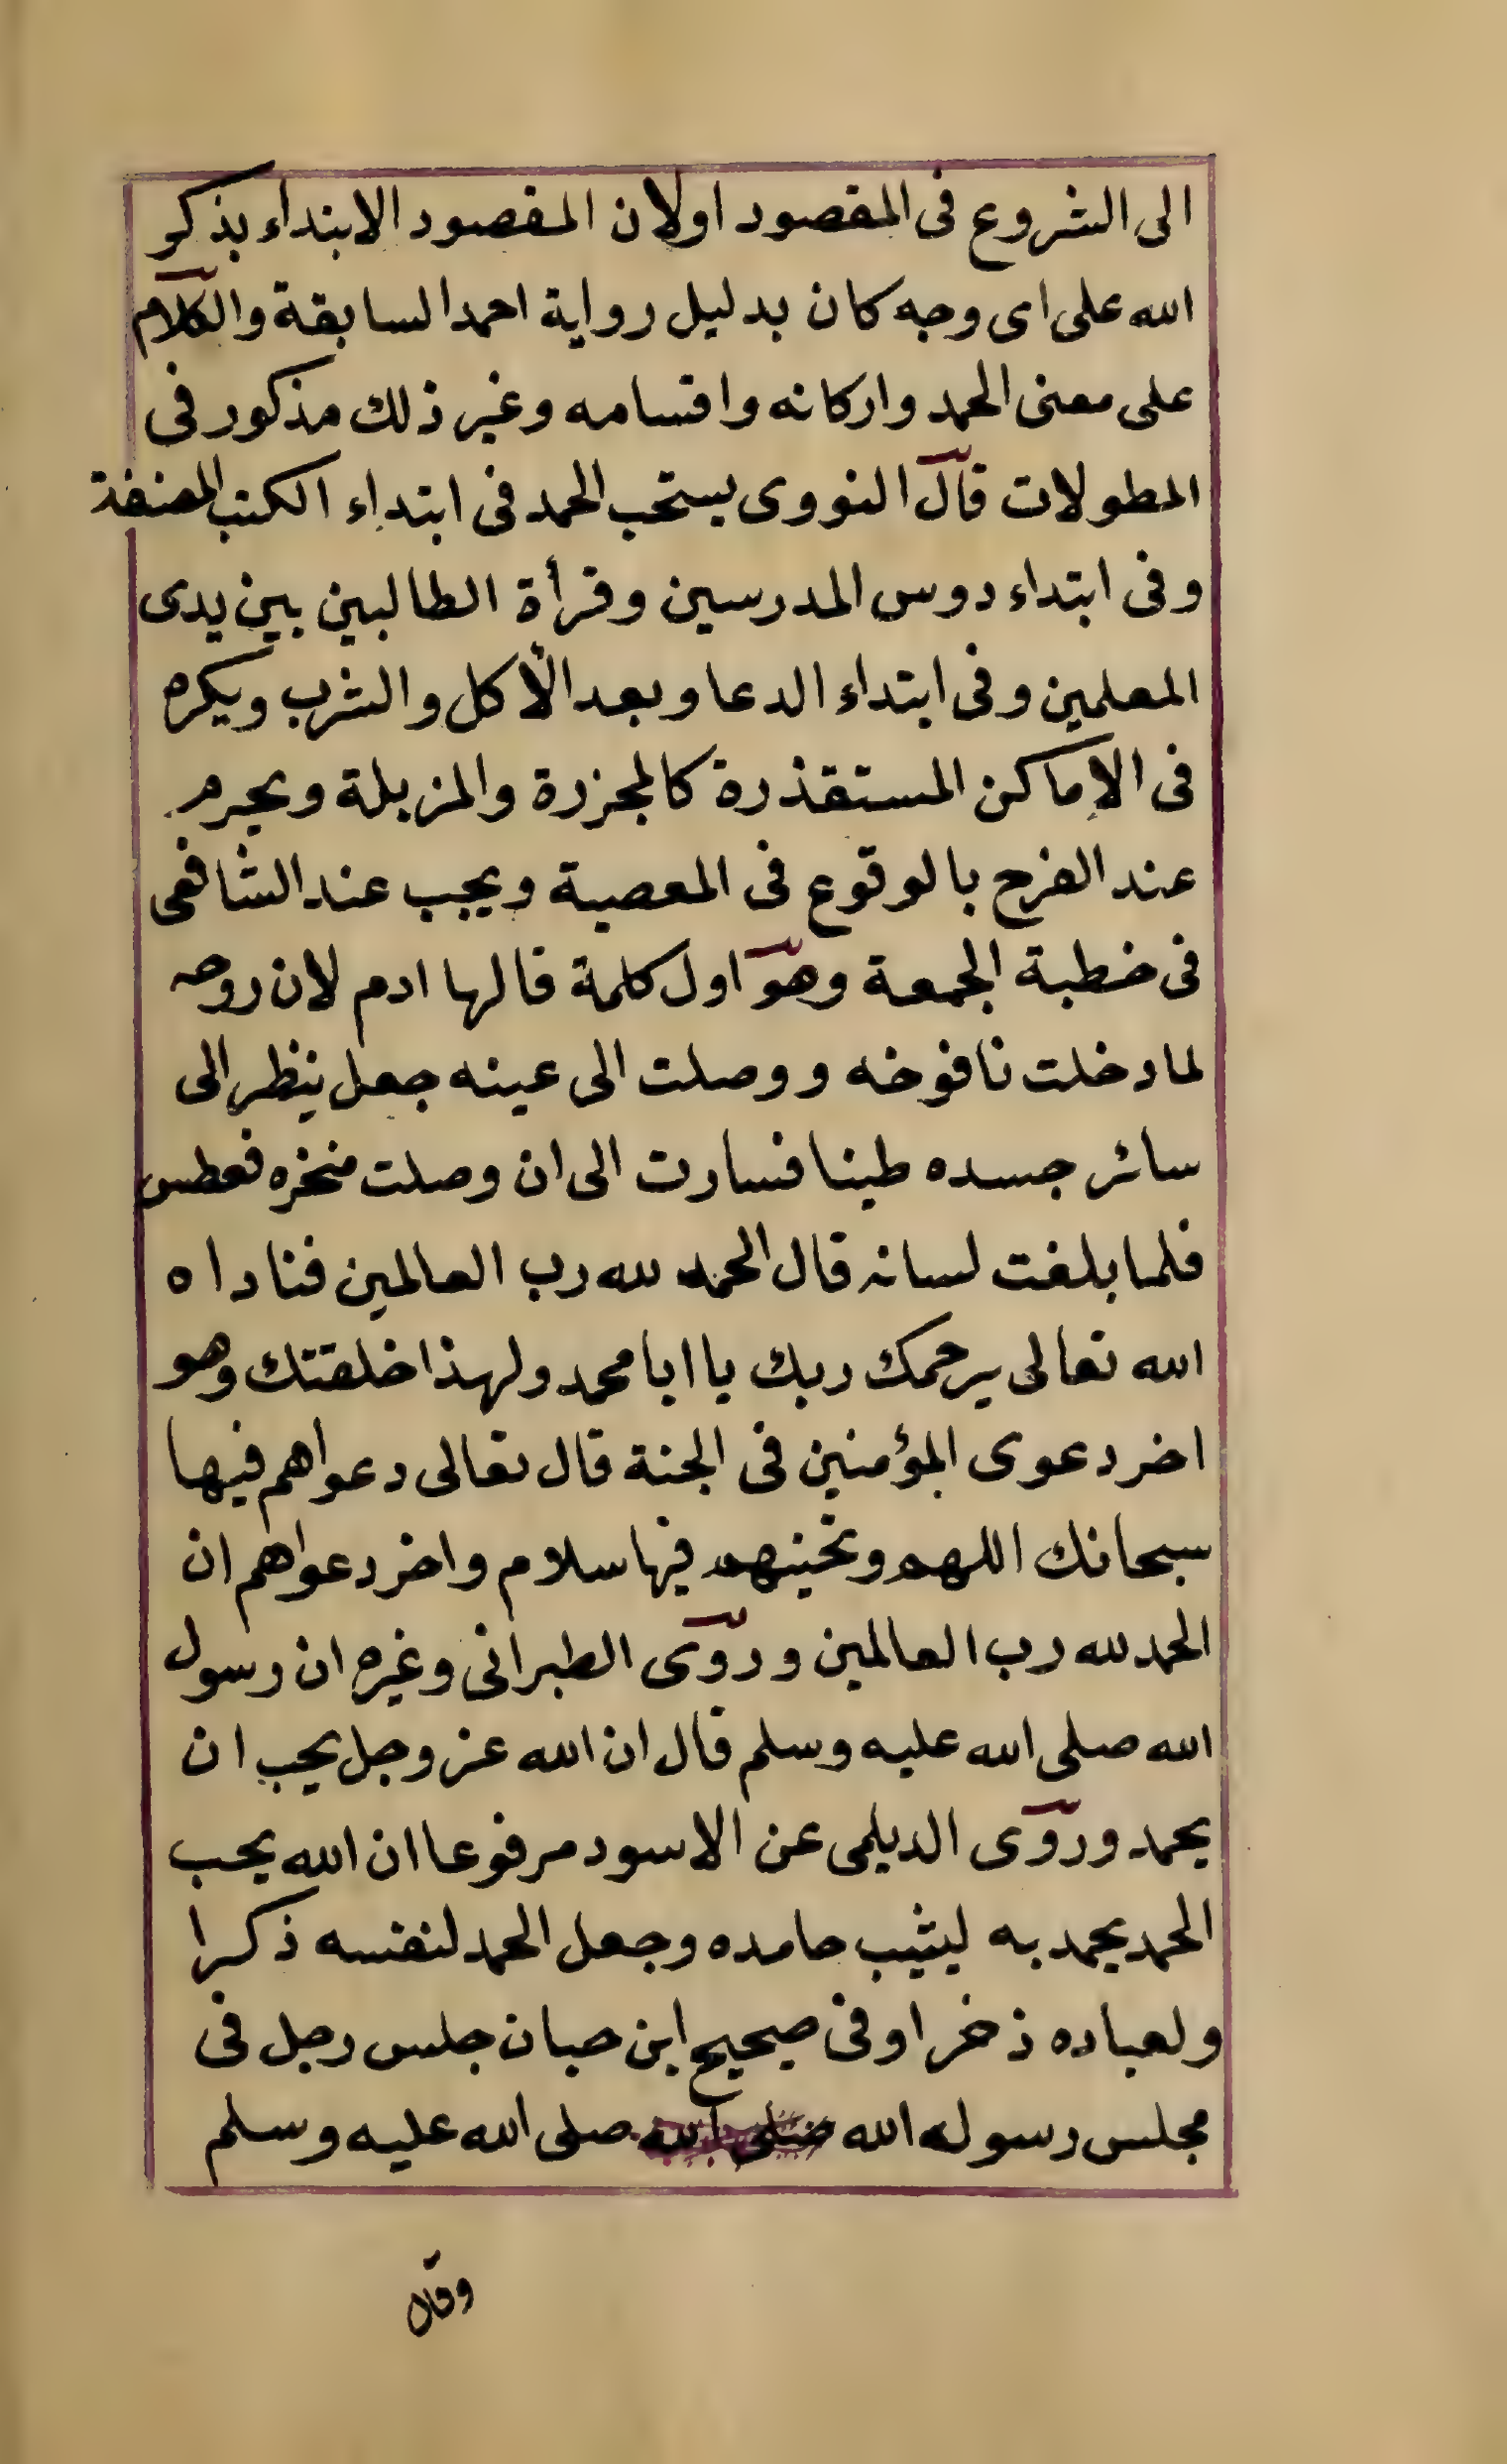 الى الشروع فى المقصود اولان المقصود الابتداء بذكر
الله على اى وجه كان بدليل رواية احمد السابقة والكلام
على معنى الحمد واركانه واقسامه وغير ذلك مذكور فى
المطولات قال النووى يستحب الحمد فى ابتداء الكتب المصنفة
وفى ابتداء دوس المدرسين وقرأة الطالبين بين يدى
المعلمين وفى ابتداء الدعا وبعد الأكل والشرب ويكره
فى الاماكن المستقذرة كالمجزرة والمزبلة ويحرم
عند الفرح بالوقوع فى المعصية ويجب عند الشافعى
فى خطبة الجمعة وهو اول كلمة قالها ادم لان روحه
لما دخلت نافوخه ووصلت الى عينه جعل ينظر الى
سائر جسده طينا فسارت الى ان وصلت منخره فعطس
فلما بلغت لسانه قال الحمد لله رب العالمين فناداه
الله تعالى يرحمك ربك يا ابا محمد ولهذا خلقتك وهو
اخر دعوى المؤمنين فى الجنة قال تعالى دعواهم فيها
سبحانك اللهم وتحيتهم فيها سلام واخر دعواهم ان
الحمد لله رب العالمين وروى الطبرانى وغيره ان رسول
الله صلى الله عليه وسلم قال ان الله عز وجل يحب ان
يحمد وروى الديلمى عن الاسود مرفوعا ان الله يحب
الحمد يحمد به ليثيب حامده وجعل الحمد لنفسه ذكرا
ولعباده ذخرا وفى صحيح ابن حبان جلس رجل فى
مجلس رسول الله صلى الله صلى الله عليه وسلم
وقال